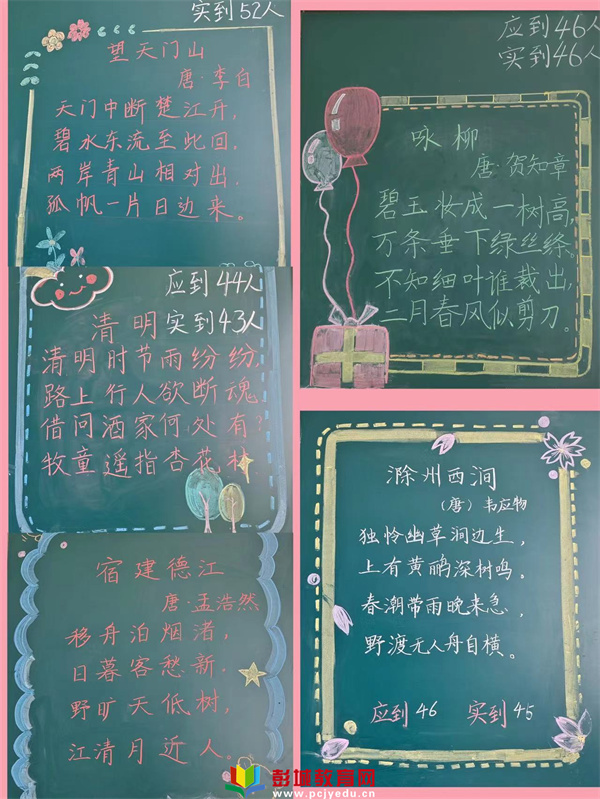 实到52人
望天门山
唐·李白
天门中断楚江开，
碧水东流至此回，
两岸青山相对出，
孤帆一片日边来。
应到44人
清明 实到43人
清明时节雨纷纷，
路上行人欲断魂
借问酒家何处有？
牧童遥指杏花村
宿建德江
唐·孟浩然
移舟泊烟渚，
日暮客愁新.
野旷天低树，
江清月近人。
应到46人
实到46人
咏柳
唐·贺知章
碧玉妆成一树高，
万条垂下绿丝绦。
不知细叶谁裁出，
二月春风似剪刀。
滁州西涧
（唐）韦应物
独怜幽草涧边生，
上有黄鹂深树鸣。
春潮带雨晚来急，
野渡无人舟自横。
应到46 实到45
彭城教育网
www.pcjyedu.cn